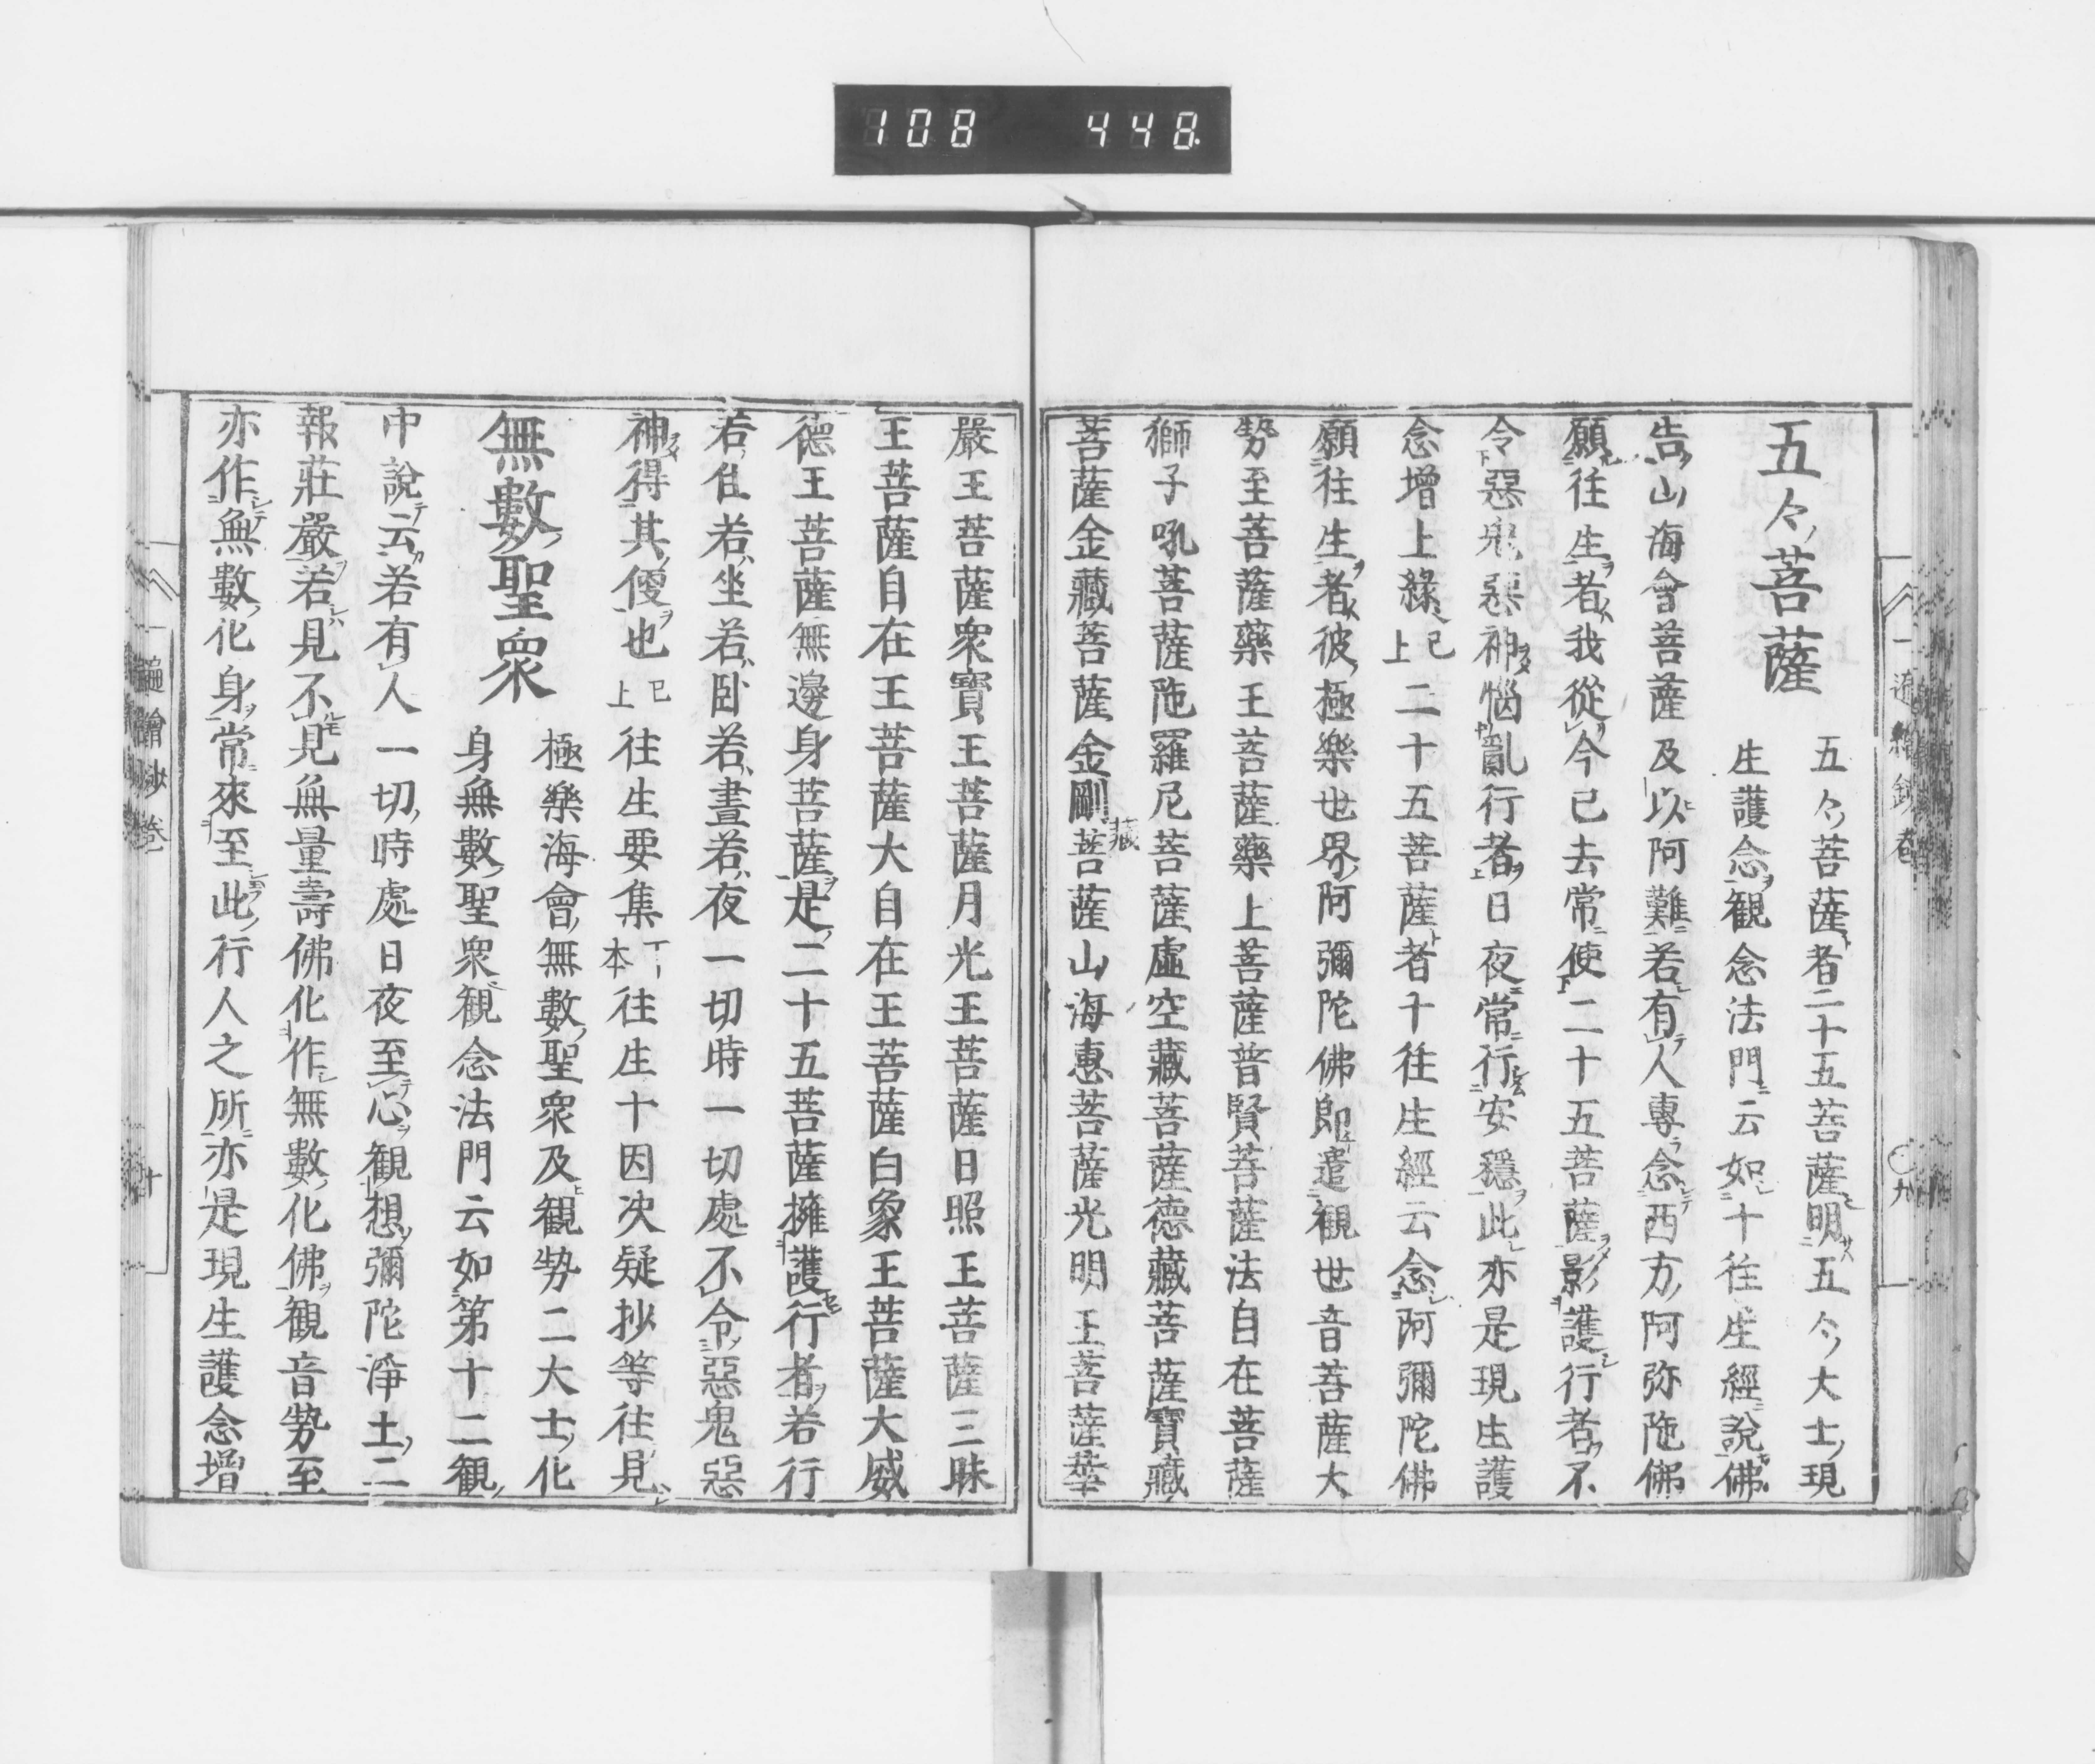 108 448
五々菩薩
五々菩薩者二十五菩薩明五々大士現
生護念観念法門云如十往生經說佛
告山海會菩薩及以阿難若有人專念西方阿弥陁佛
願往生者我從今已去常使二十五菩薩影護行者不
令惡鬼惡神惱亂行者日夜常行安穩此亦是現生護
念增上緣已上二十五菩薩者十往生經云念阿彌陀佛
願往生者彼極樂世界阿彌陀佛即遣觀世音菩薩大
勢至菩薩藥王菩薩藥上菩薩普賢菩薩法自在菩薩
獅子吼菩薩陁羅尼菩薩虛空藏菩薩德藏菩薩寶藏
菩薩金藏菩薩金剛藏菩薩山海惠菩薩光明王菩薩華
嚴王菩薩衆寶王菩薩月光王菩薩日照王菩薩三昧
王菩薩自在王菩薩大自在王菩薩白象王菩薩大威
德王菩薩無邊身菩薩是二十五菩薩擁護行者若行
若住若坐若臥若晝若夜一切時一切處不令惡鬼惡
神得其便也已上往生要集丁本往生十因决疑抄等往見
無數聖衆
極樂海會無數聖衆及観勢二大士化
身無數聖衆観念法門云如第十二観
中說云若有人一切時處日夜至心観想彌陀淨土二
報莊嚴若見不見無量壽佛化作無數化佛観音勢至
亦作無數化身常來至此行人之所亦是現生護念增